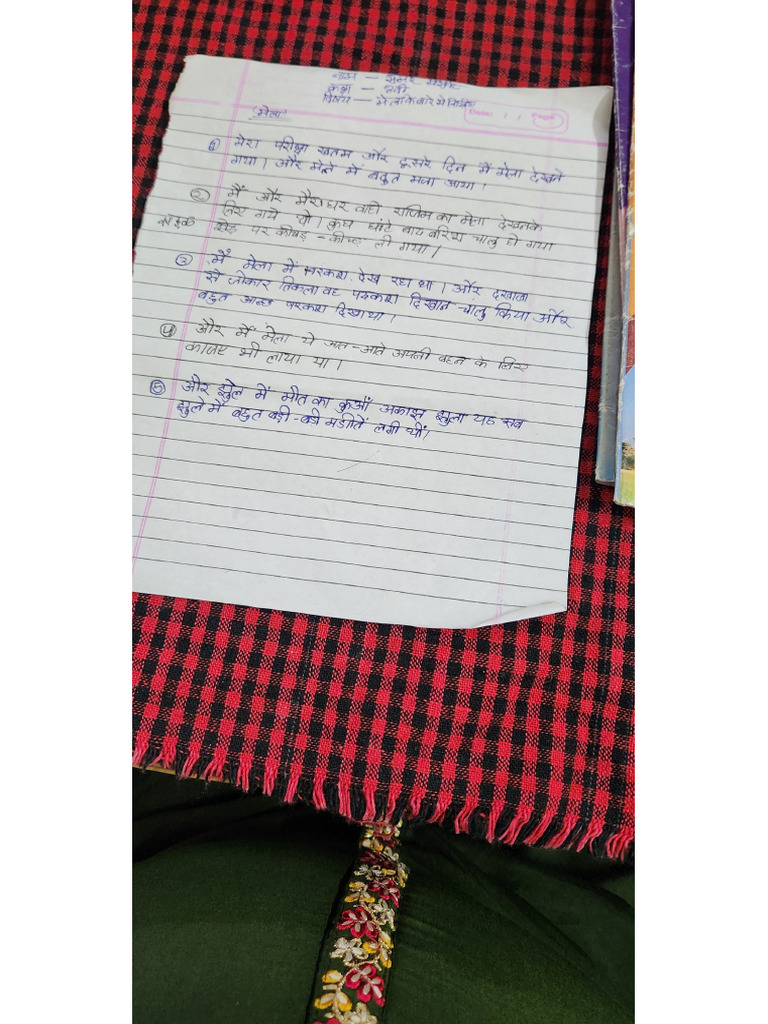 नाम —
कक्षा —
विषय — मेला के बारे में
Date: Page:
"मेला"
① मेरा परीक्षा खतम और दुसरे दिन मैं मेला देखने
गया। और मेले में बहुत मजा आया।
② मैं और मेरा घर वाले राजिम का मेला देखनके
लिए गये थे। कुछ घांटे बाद बारिश चालु हो गया
रोड़ पर कीचड़ - कीचड़ हो गया।
③ मैं मेला में सरकश देख रहा था। और दरवाजा
से जोकर निकला वह सरकश दिखाने चालु किया और
बहुत अच्छा सरकश दिखाया।
④ और मैं मेला से आते-आते अपनी बहन के लिए
भी लाया था।
⑤ और झुले में मौत का कुआँ अकाश झुला यह सब
झुले में बहुत बड़ी-बड़ी मशीनें लगी थीं।